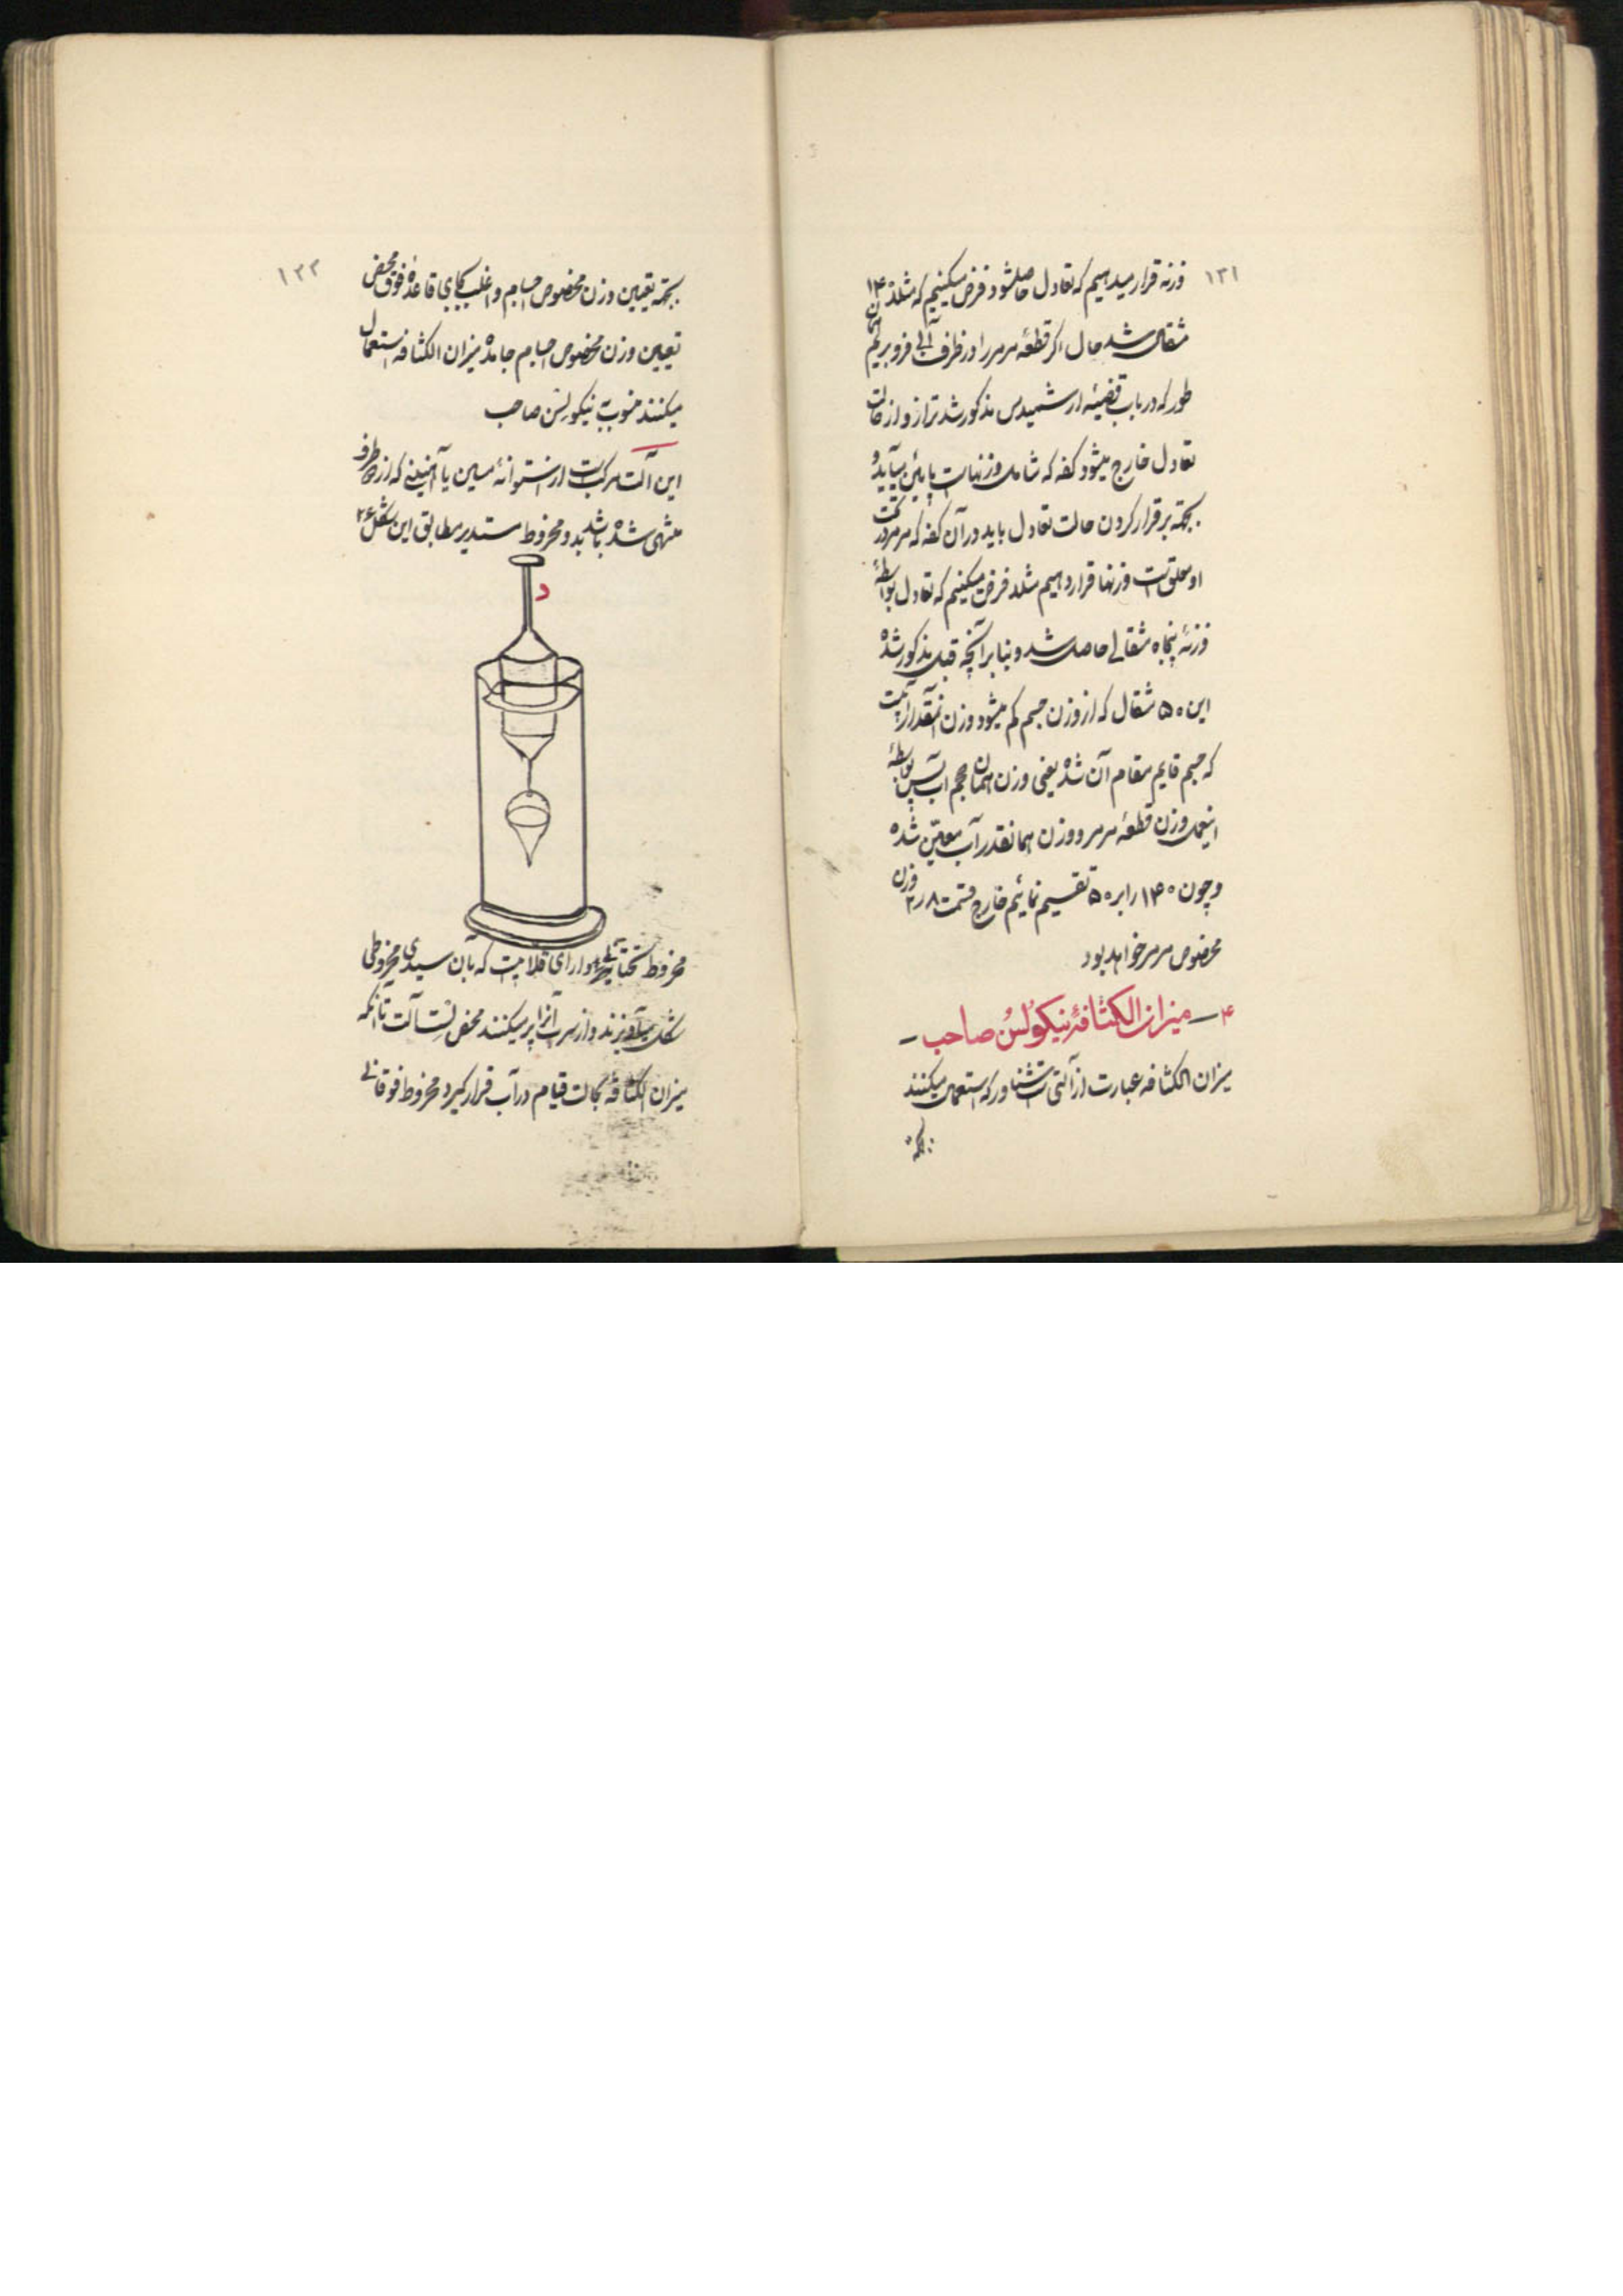 ۱۳۱
وزنه قرار میدهیم که تعادل حاصلشود فرض میکنیم که مثلا ۱۴۰
مثقال شد حال اگر قطعهٔ مرمر را در ظرف آبی فرو بریم همان
طور که در باب قضیهٔ ارشمیدس مذکور شد ترازو از حالت
تعادل خارج میشود کفه که شامل وزنهاست پایین میآید و
بجهته برقرار کردن حالت تعادل باید در آن کفه که مرمر در تحت
او معلق است وزنها قرار دهیم مثلا فرض میکنیم که تعادل بواسطهٔ
وزنهٔ پنجاه مثقالی حاصل شد و بنا بر آنچه قبل مذکور شده
این ۵۰ مثقال که از وزن جسم کم میشود وزن آنقدر آبیست
که جسم قایم مقام آن شده یعنی وزن همان حجم آب پس بواسطهٔ
اینعمل وزن قطعهٔ مرمر و وزن همانقدر آب معین شده
و چون ۱۴۰ را بر ۵۰ تقسیم نمائیم خارج قسمت ۲٫۸ وزن
مخصوص مرمر خواهد بود
۴ — میزان الکثافهٔ نیکولسُن صاحب —
میزان الکثافه عبارت از آلتی است شناور که استعمال میکنند
بجهته
۱۳۲
بجهته تعیین وزن مخصوص اجسام و اغلب بجای قاعدهٔ فوق محض
تعیین وزن مخصوص اجسام جامده میزان الکثافه استعمال
میکنند منسوب به نیکولسن صاحب
این آلت مرکب است از استوانهٔ مسین یا آهنینی که از دو طرف
منتهی شده باشد بدو مخروط مستدیر مطابق این شکل ۲۶
د
مخروط تحتانی دارای قلابیست که بآن سبدی مخروطی
شکل میآویزند و از سرب آنرا پر میکنند محض اینست تا آنکه
میزان الکثافه بحالت قیام در آب قرار گیرد مخروط فوقانی